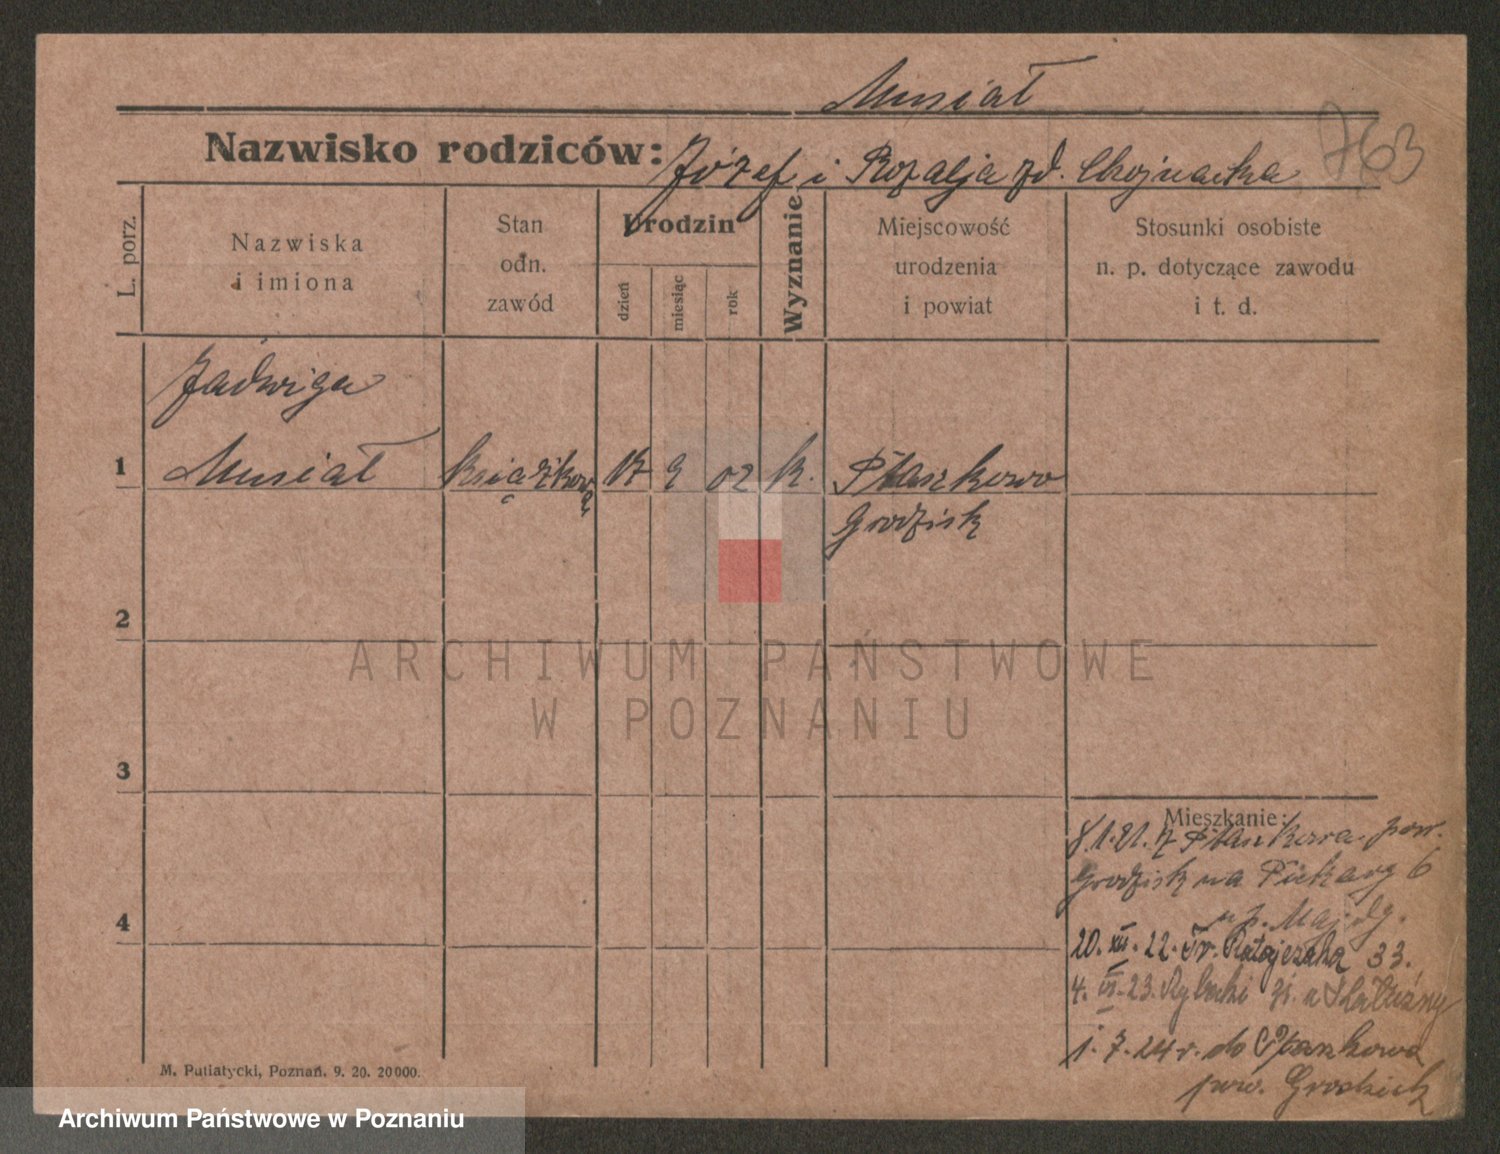 Musiał
Nazwisko rodziców: Józef i Rozalja zd. Chojnacka
763
L. porz.
Nazwiska
i imiona
Stan
odn.
zawód
Urodzin
dzień
miesiąc
rok
Wyznanie
Miejscowość
urodzenia
i powiat
Stosunki osobiste
n. p. dotyczące zawodu
i t. d.
Jadwiga
1 Musiał książkowa 17 9 02 k. Ptaszkowo
Grodzisk
2
3
4
ARCHIWUM PAŃSTWOWE
W POZNANIU
Mieszkanie:
8.1.21. z Ptaszkowa pow.
Grodzisk na Piekary 6
u p.
20. XII. 22. Fr. Ratajczaka 33.
4. 23. Rybaki 31. u
1. 7. 24 r. do Ptaszkowa
pow. Grodzisk
M. Putiatycki, Poznań. 9. 20. 20000.
Archiwum Państwowe w Poznaniu